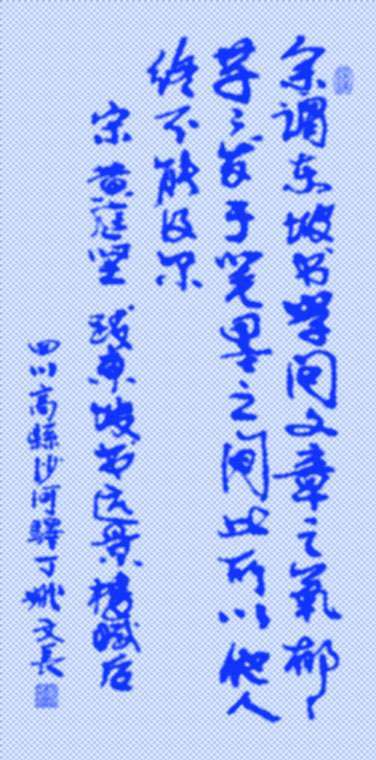 余谓东坡书学问文章之氣郁〻
芊〻发于笔墨之间此所以他人
终不能及尔
宋 黄庭坚 跋東坡书远景楼赋后
四川高縣沙河驛丁姚文長